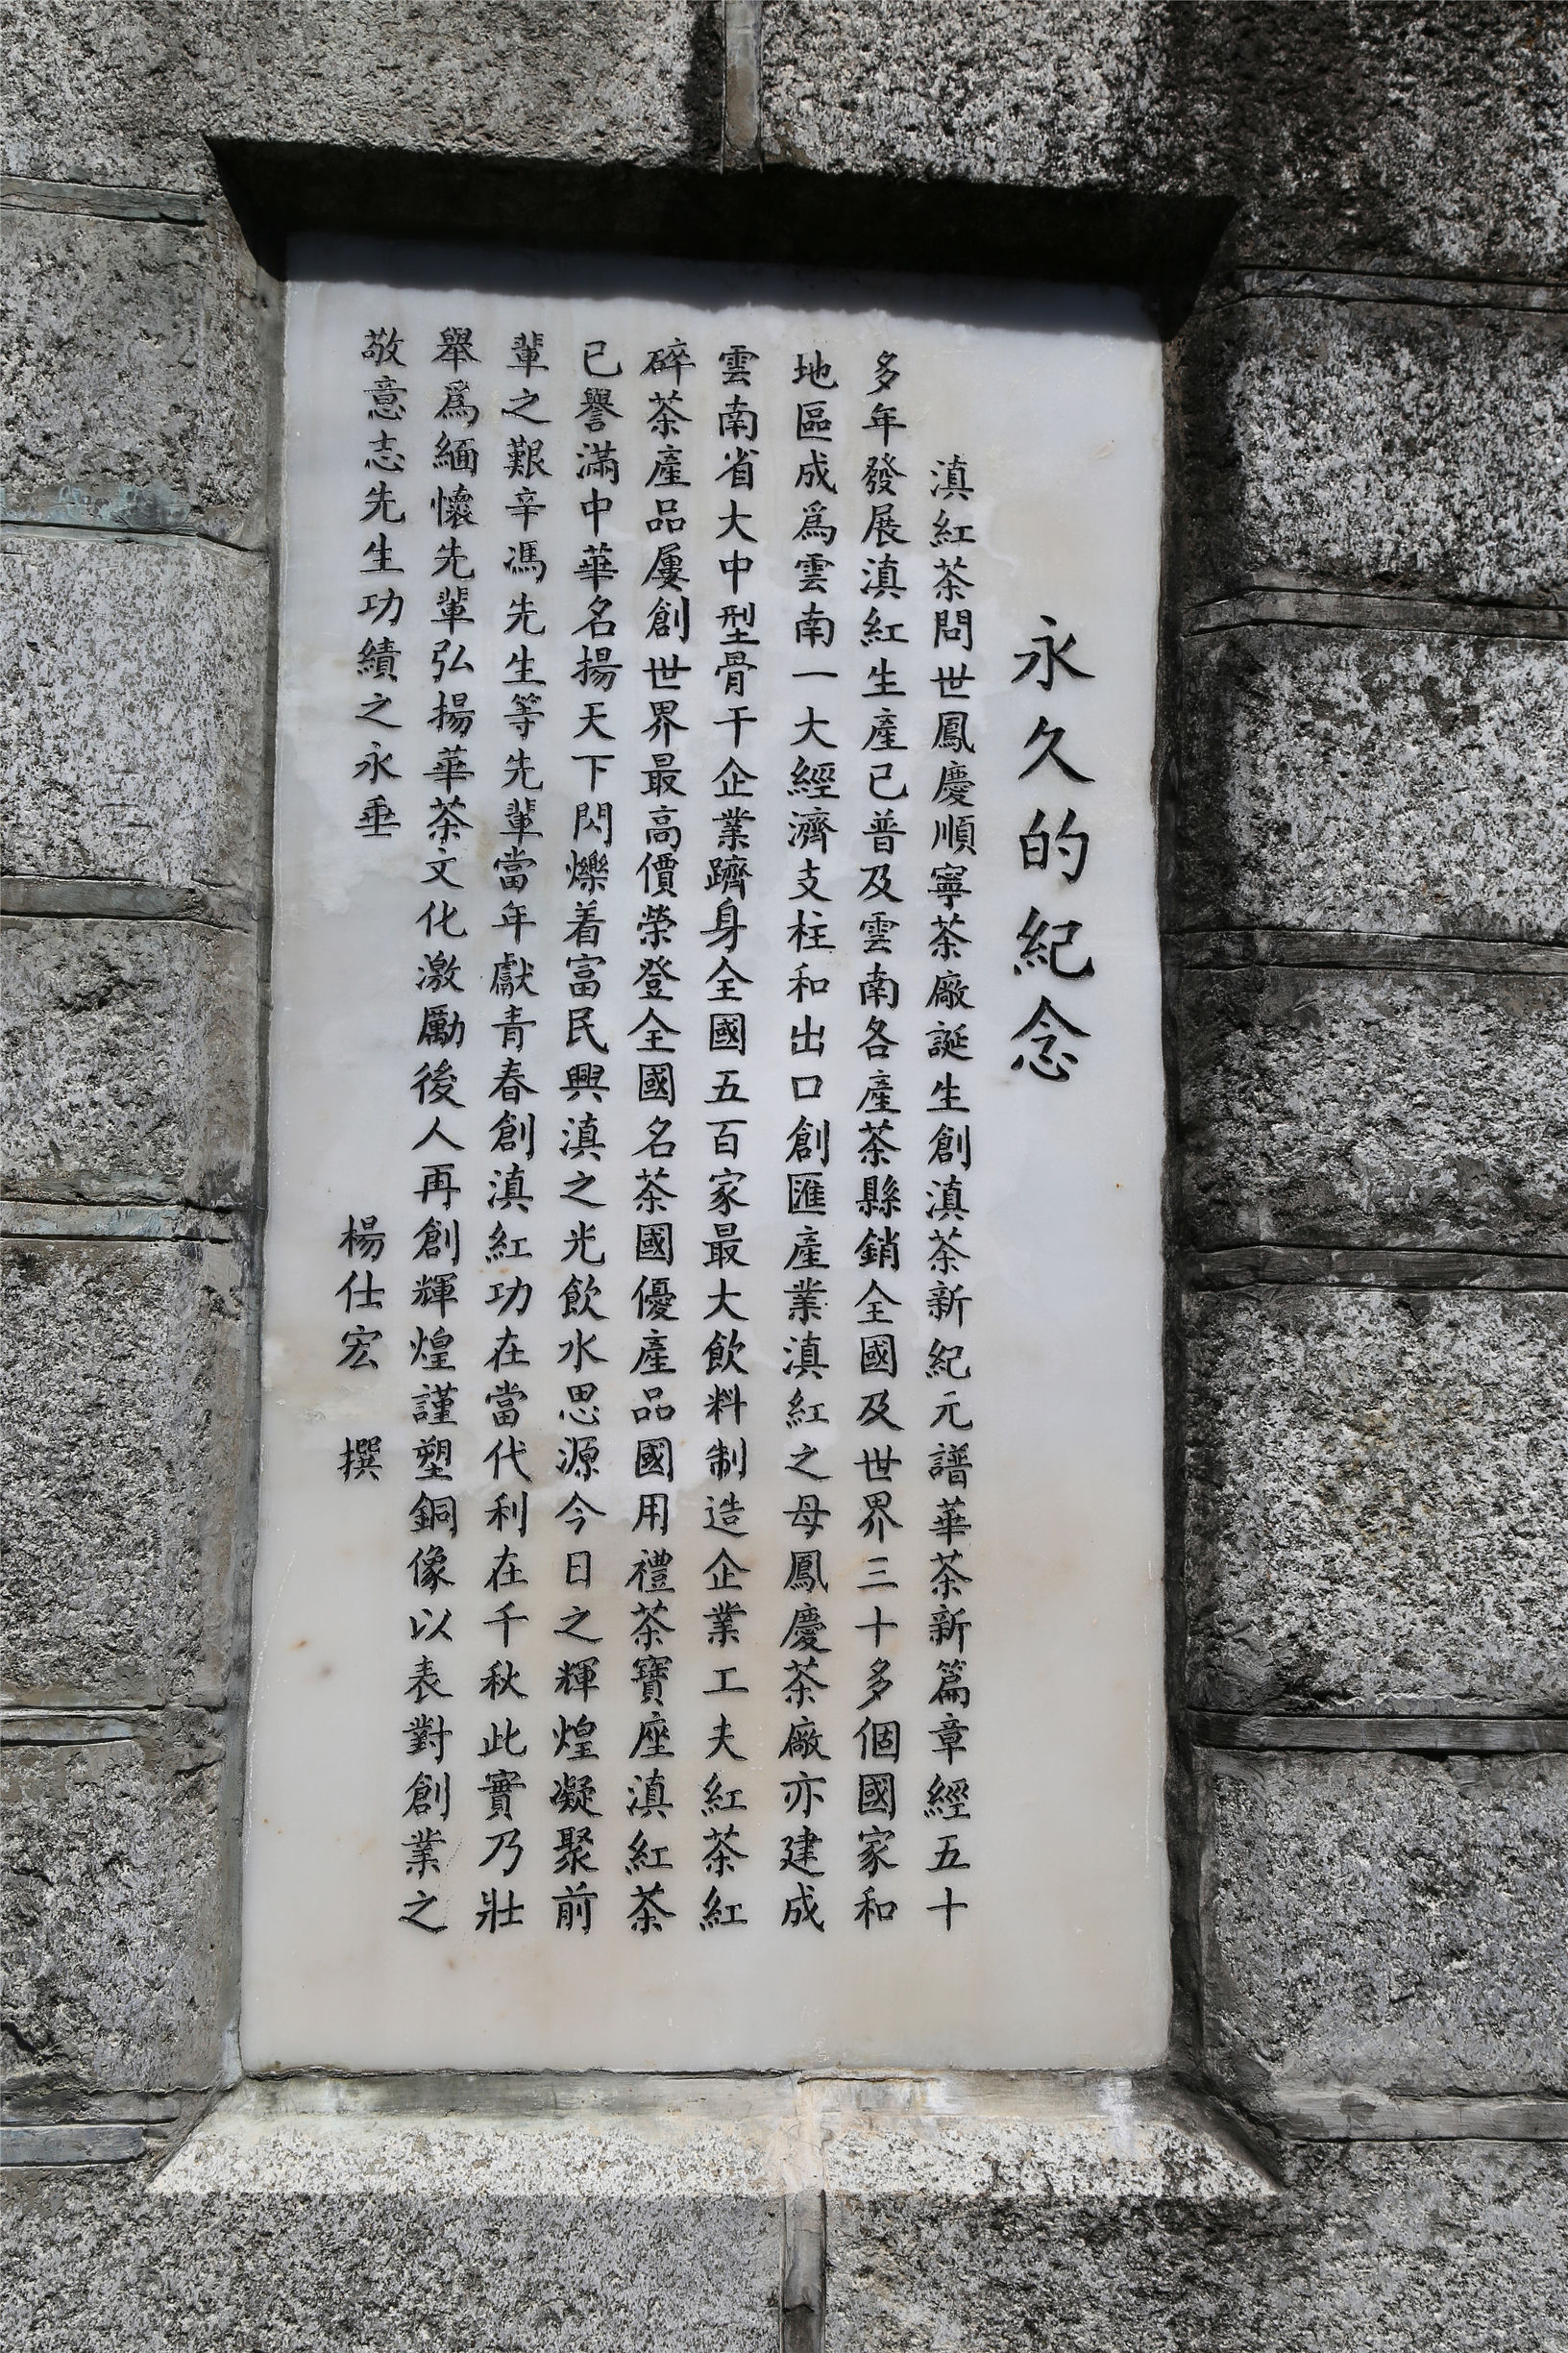 永久的紀念
滇紅茶問世鳳慶順寧茶廠誕生創滇茶新紀元譜華茶新篇章經五十
多年發展滇紅生產已普及雲南各產茶縣銷全國及世界三十多個國家和
地區成爲雲南一大經濟支柱和出口創匯產業滇紅之母鳳慶茶廠亦建成
雲南省大中型骨干企業躋身全國五百家最大飲料制造企業工夫紅茶紅
碎茶產品屢創世界最高價榮登全國名茶國優產品國用禮茶寶座滇紅茶
已譽滿中華名揚天下閃爍着富民興滇之光飲水思源今日之輝煌凝聚前
輩之艱辛馮先生等先輩當年獻青春創滇紅功在當代利在千秋此實乃壯
舉爲緬懷先輩弘揚華茶文化激勵後人再創輝煌謹塑銅像以表對創業之
敬意志先生功績之永垂
楊仕宏 撰